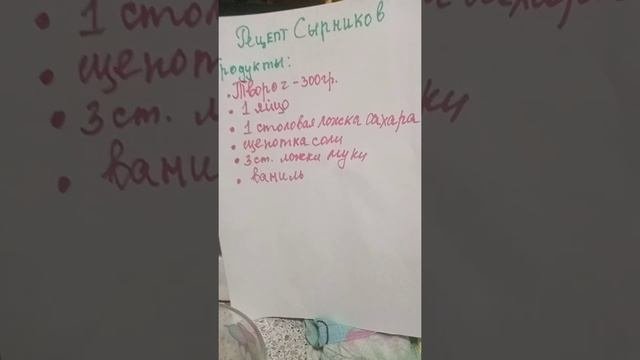 Рецепт Сырников
родукты:
• Творог - 300гр.
• 1 яйцо
• 1 столовая ложка сахара
• щепотка соли
• 3 ст. ложки муки
• ваниль